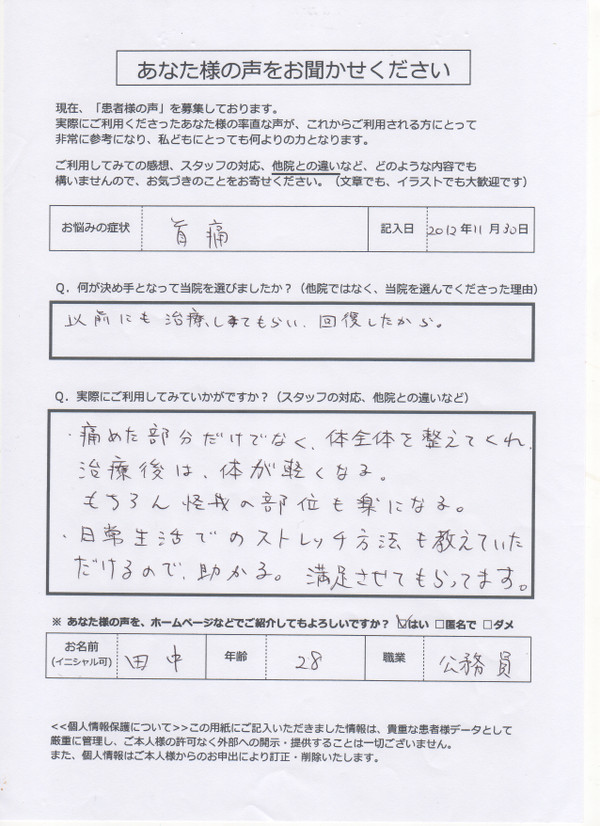 あなた様の声をお聞かせください
現在、「患者様の声」を募集しております。
実際にご利用くださったあなた様の率直な声が、これからご利用される方にとって
非常に参考になり、私どもにとっても何よりの力となります。
ご利用してみての感想、スタッフの対応、他院との違いなど、どのような内容でも
構いませんので、お気づきのことをお寄せください。（文章でも、イラストでも大歓迎です）
お悩みの症状 首痛 記入日 2012年11月30日
Q．何が決め手となって当院を選びましたか？（他院ではなく、当院を選んでくださった理由）
以前にも治療してもらい、回復したから。
Q．実際にご利用してみていかがですか？（スタッフの対応、他院との違いなど）
・痛めた部分だけでなく、体全体を整えてくれ、
治療後は、体が軽くなる。
もちろん怪我の部位も楽になる。
・日常生活でのストレッチ方法も教えていた
だけるので、助かる。満足させてもらってます。
※ あなた様の声を、ホームページなどでご紹介してもよろしいですか？ ☑はい □匿名で □ダメ
お名前
(イニシャル可) 田中 年齢 28 職業 公務員
<<個人情報保護について>>この用紙にご記入いただきました情報は、貴重な患者様データとして
厳重に管理し、ご本人様の許可なく外部への開示・提供することは一切ございません。
また、個人情報はご本人様からのお申出により訂正・削除いたします。